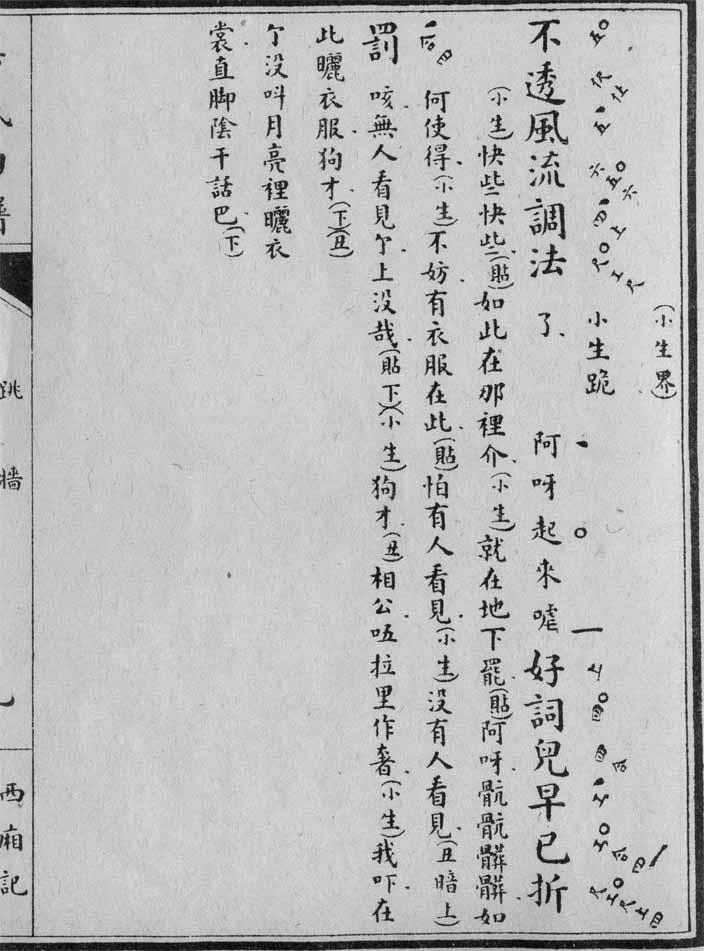 (小生界)
小生跪
不透風流調法了阿呀起來嘘好詞兒早已折
(小生)快些快些(貼)如此在那裡介(小生)就在地下罷(貼)阿呀骯骯髒髒如
何使得(小生)不妨有衣服在此(貼)怕有人看見(小生)没有人看見(丑暗上)
合四
罰咳無人看見亇上没哉(貼下)(小生)狗才(丑)相公唔拉里作奢(小生)我吓在
此曬衣服狗才(下)(丑)
亇没呌月亮裡曬衣
裳直脚陰干話巴(下)
譜
跳牆
西廂記